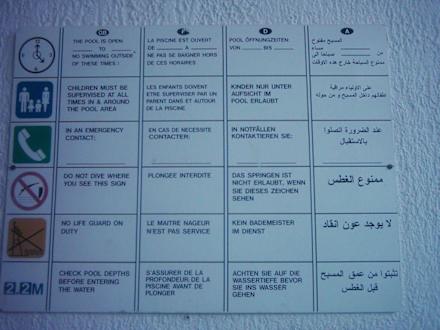 GB
F
D
A
THE POOL IS OPEN
TO
NO SWIMMING OUTSIDE
OF THESE TIMES!
LA PISCINE EST OUVERT
DE A
NE PAS SE BAIGNER HORS
DE CES HORAIRES
POOL ÖFFNUNGSZEITEN:
VON BIS
المسبح مفتوح
من صباحا الى
مساء
ممنوع السباحة خارج هذه الاوقات
CHILDREN MUST BE
SUPERVISED AT ALL
TIMES IN & AROUND
THE POOL AREA
LES ENFANTS DOIVENT
ETRE SUPERVISER PAR UN
PARENT DANS ET AUTOUR
DE LA PISCINE
KINDER NUR UNTER
AUFSICHT IM
POOL ERLAUBT
على الاولياء مراقبة
اطفالهم داخل المسبح و من حوله
IN AN EMERGENCY
CONTACT:
EN CAS DE NECESSITE
CONTACTER:
IN NOTFÄLLEN
KONTAKTIEREN SIE:
عند الضرورة اتصلوا
بالاستقبال
DO NOT DIVE WHERE
YOU SEE THIS SIGN
PLONGEE INTERDITE
DAS SPRINGEN IST
NICHT ERLAUBT, WENN
SIE DIESES ZEICHEN
SEHEN
ممنوع الغطس
NO LIFE GUARD ON
DUTY
LE MAITRE NAGEUR
N'EST PAS SERVICE
KEIN BADEMEISTER
IM DIENST
لا يوجد عون انقاد
2.2M
CHECK POOL DEPTHS
BEFORE ENTERING
THE WATER
S'ASSURER DE LA
PROFONDEUR DE LA
PISCINE AVANT DE
PLONGER
ACHTEN SIE AUF DIE
WASSERTIEFE BEVOR
SIE INS WASSER
GEHEN
تثبتوا من عمق المسبح
قبل الغطس